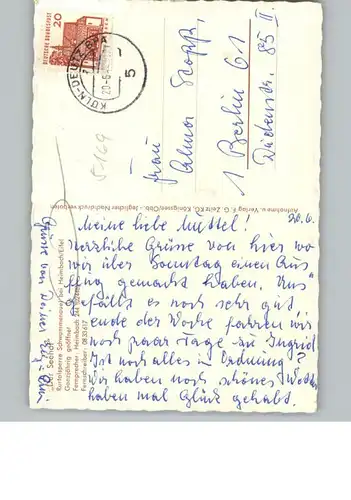 20
DEUTSCHE BUNDESPOST
KÖLN-DEUTZ
5
5169
Frau
Alma Stopp,
1 Berlin 61
Dudenstr. 85 II.
Aufnahme u. Verlag F. G. Zeitz KG., Königssee/Obb. · Jeglicher Nachdruck verboten
„Der Seehof“
Rurtalsperre Schwammenauel bei Heimbach/Eifel
Ganzjährig geöffnet
Fernsprecher: Heimbach
Fernschreiber: 0833 617
20.6.
Meine liebe Muttel!
Herzliche Grüße von hier wo
wir über Sonntag einen Aus=
flug gemacht haben. Uns
gefällt es noch sehr gut
ende der Woche fahren wir
noch paar Tage zu Ingrid
Ist noch alles in Ordnung?
Wir haben noch schönes Wetter
haben mal Glück gehabt.
Grüße von Deiner